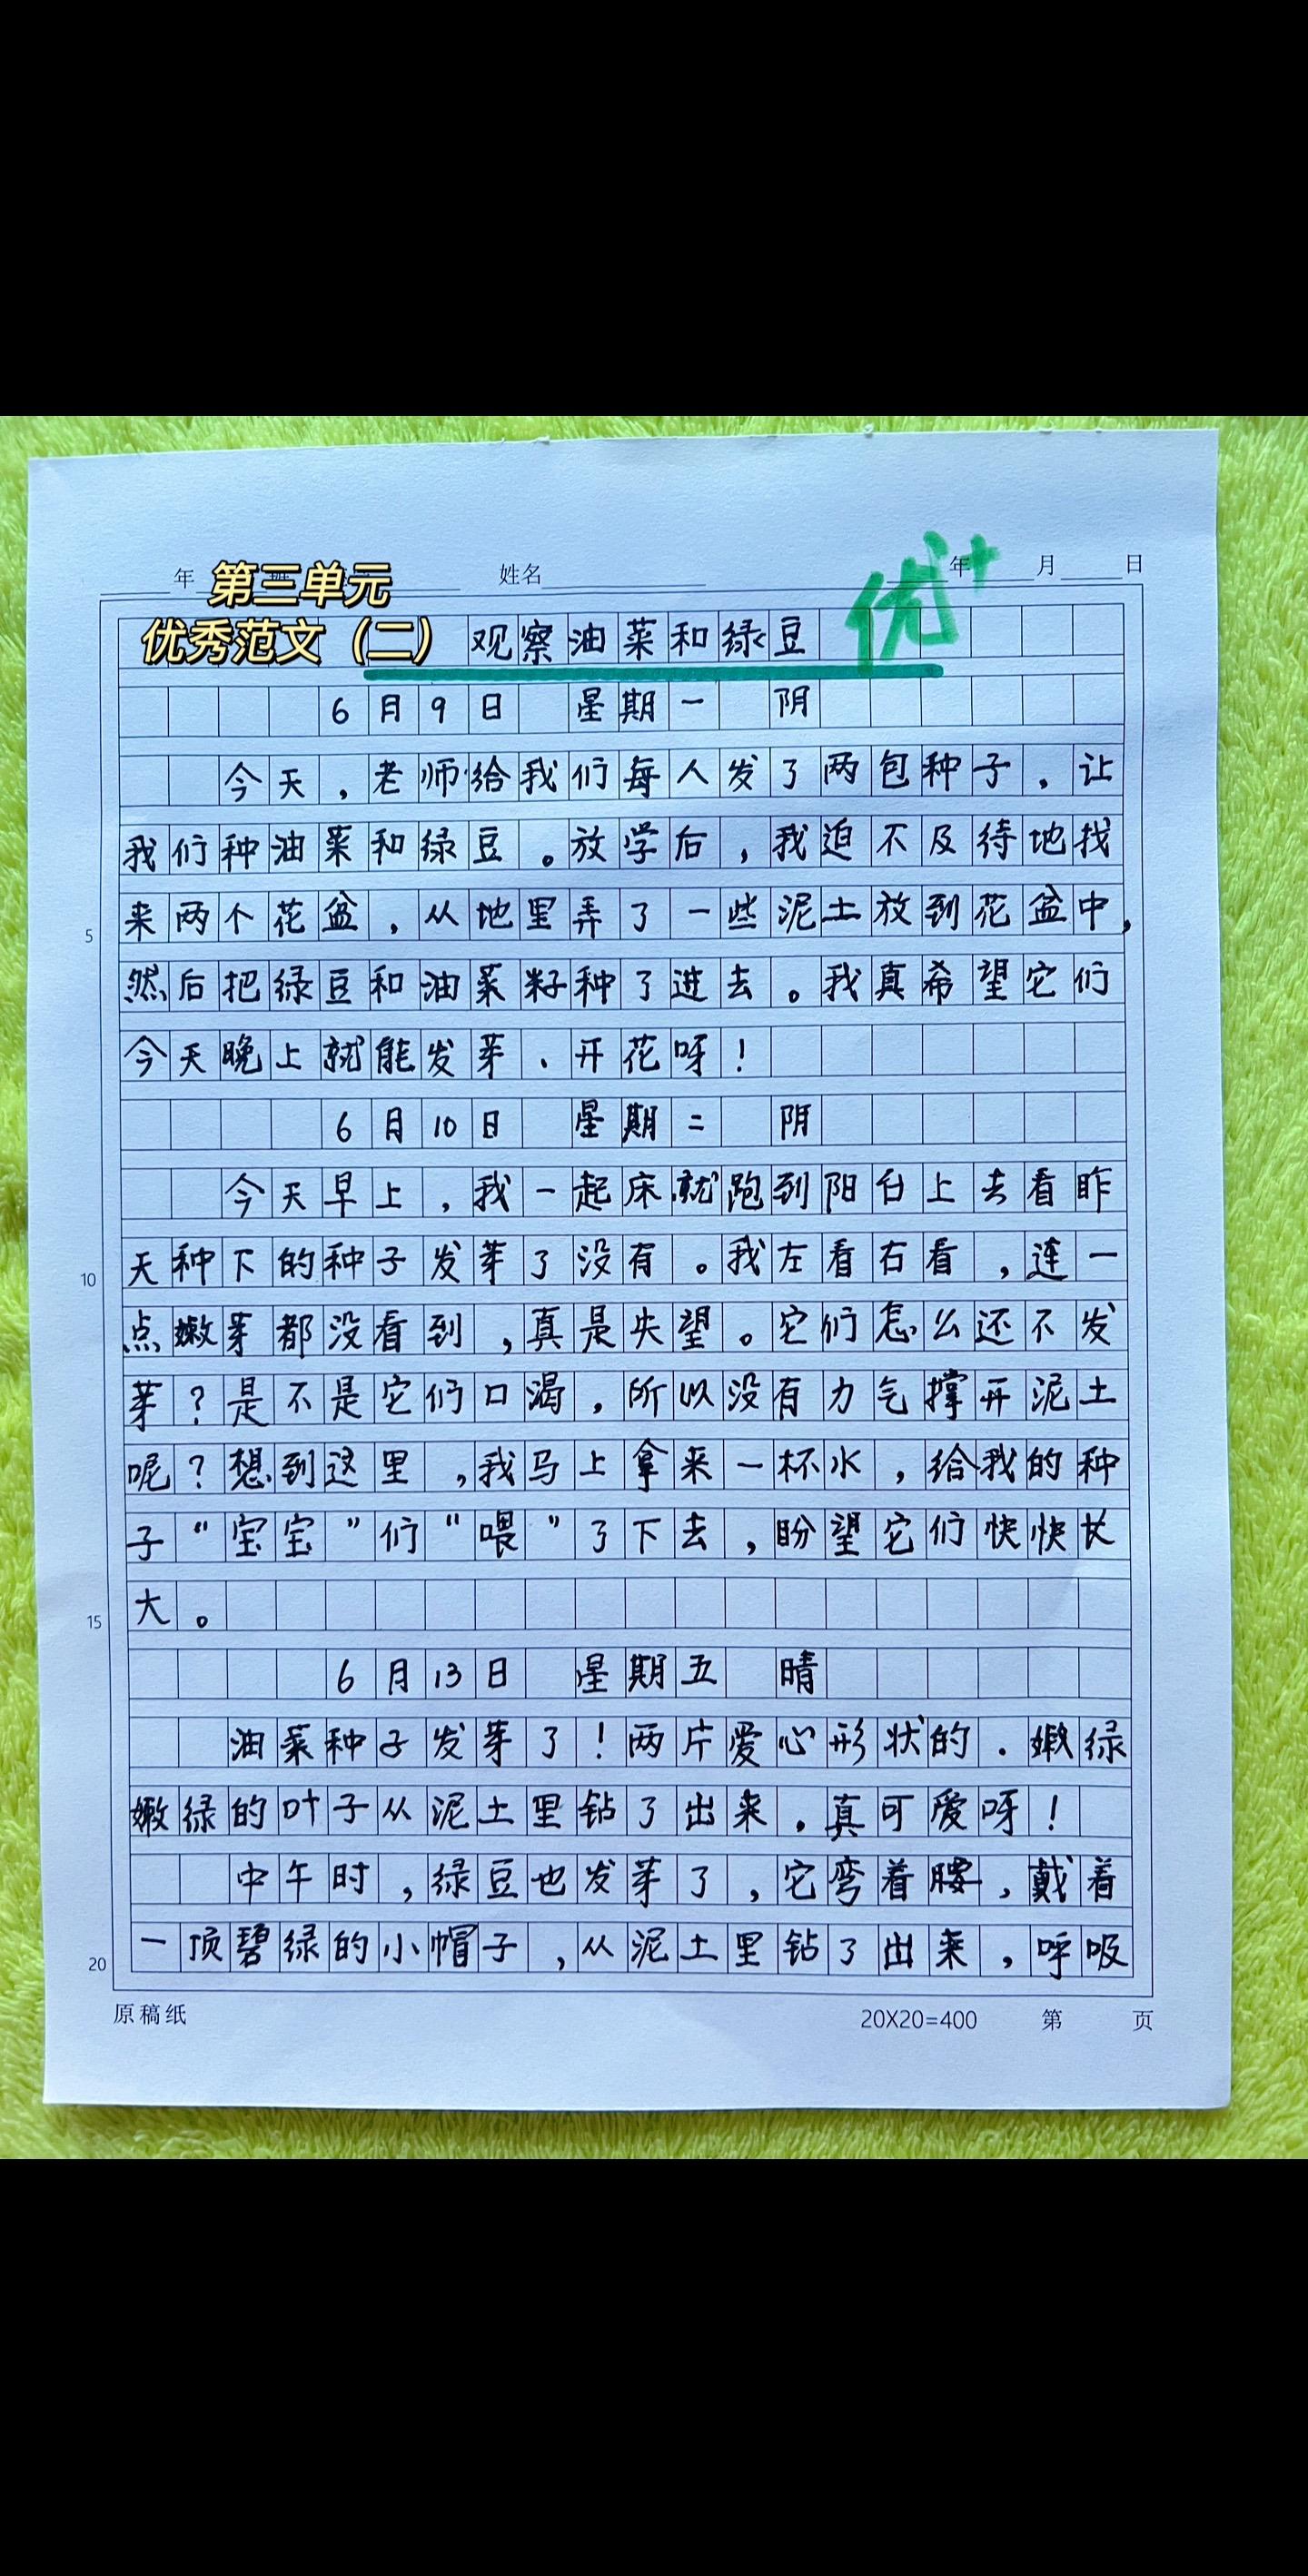 年 姓名 年 月 日
第三单元
优秀范文（二）
优+
观察油菜和绿豆
6月9日 星期一 阴
今天，老师给我们每人发了两包种子，让
我们种油菜和绿豆。放学后，我迫不及待地找
来两个花盆，从地里弄了一些泥土放到花盆中，
然后把绿豆和油菜籽种了进去。我真希望它们
今天晚上就能发芽、开花呀！
6月10日 星期二 阴
今天早上，我一起床就跑到阳台上去看昨
天种下的种子发芽了没有。我左看右看，连一
点嫩芽都没看到，真是失望。它们怎么还不发
芽？是不是它们口渴，所以没有力气撑开泥土
呢？想到这里，我马上拿来一杯水，给我的种
子“宝宝”们“喂”了下去，盼望它们快快长
大。
6月13日 星期五 晴
油菜种子发芽了！两片爱心形状的、嫩绿
嫩绿的叶子从泥土里钻了出来，真可爱呀！
中午时，绿豆也发芽了，它弯着腰，戴着
一顶碧绿的小帽子，从泥土里钻了出来，呼吸
5
10
15
20
原稿纸 20X20=400 第 页